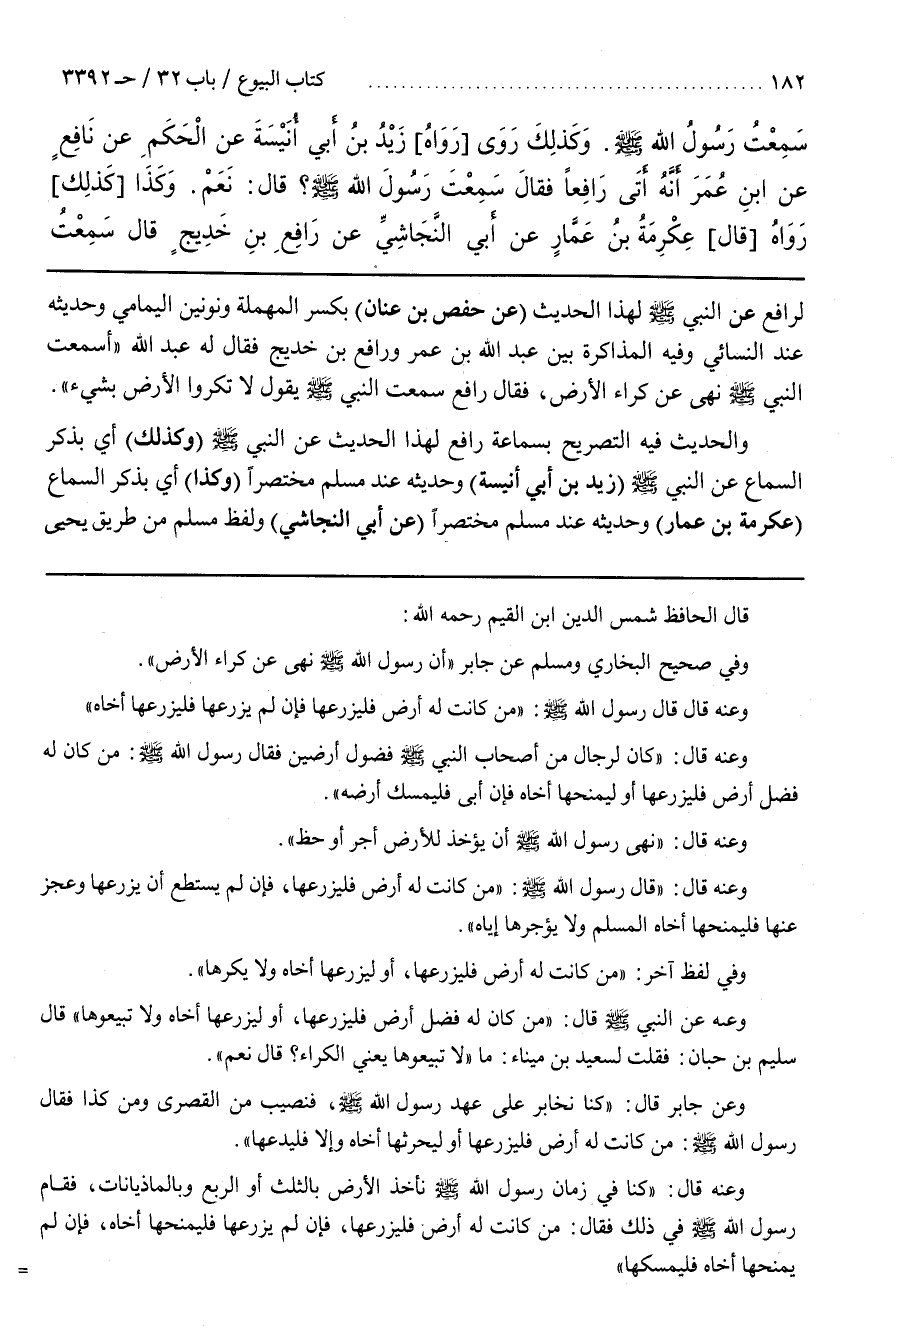 ١٨٢ ........................................ كتاب البيوع / باب ٣٢ / حـ ٣٣٩٢
سَمِعْتُ رَسُولُ الله ﷺ. وَكَذلِكَ رَوَى [رَوَاهُ] زَيْدُ بنُ أَبي أُنَيْسَةَ عن الْحَكَمِ عن نَافِعٍ
عن ابنِ عُمَرَ أَنَّهُ أَتَى رَافِعاً فقالَ سَمِعْتَ رَسُولَ الله ﷺ؟ قال: نَعَمْ. وَكَذَا [كَذلِك]
رَوَاهُ [قال] عِكْرِمَةُ بنُ عَمَّارٍ عن أَبي النَّجَاشِيِّ عن رَافِعِ بنِ خَدِيجٍ قال سَمِعْتُ
لرافع عن النبي ﷺ لهذا الحديث (عن حفص بن عنان) بكسر المهملة ونونين اليمامي وحديثه
عند النسائي وفيه المذاكرة بين عبد الله بن عمر ورافع بن خديج فقال له عبد الله «أسمعت
النبي ﷺ نهى عن كراء الأرض، فقال رافع سمعت النبي ﷺ يقول لا تكروا الأرض بشيء».
والحديث فيه التصريح بسماعة رافع لهذا الحديث عن النبي ﷺ (وكذلك) أي بذكر
السماع عن النبي ﷺ (زيد بن أبي أنيسة) وحديثه عند مسلم مختصراً (وكذا) أي بذكر السماع
(عكرمة بن عمار) وحديثه عند مسلم مختصراً (عن أبي النجاشي) ولفظ مسلم من طريق يحيى
قال الحافظ شمس الدين ابن القيم رحمه الله:
وفي صحيح البخاري ومسلم عن جابر «أن رسول الله ﷺ نهى عن كراء الأرض».
وعنه قال قال رسول الله ﷺ: «من كانت له أرض فليزرعها فإن لم يزرعها فليزرعها أخاه»
وعنه قال: «كان لرجال من أصحاب النبي ﷺ فضول أرضين فقال رسول الله ﷺ: من كان له
فضل أرض فليزرعها أو ليمنحها أخاه فإن أبى فليمسك أرضه».
وعنه قال: «نهى رسول الله ﷺ أن يؤخذ للأرض أجر أو حظ».
وعنه قال: «قال رسول الله ﷺ: «من كانت له أرض فليزرعها، فإن لم يستطع أن يزرعها وعجز
عنها فليمنحها أخاه المسلم ولا يؤجرها إياه».
وفي لفظ آخر: «من كانت له أرض فليزرعها، أو ليزرعها أخاه ولا يكرها».
وعنه عن النبي ﷺ قال: «من كان له فضل أرض فليزرعها، أو ليزرعها أخاه ولا تبيعوها» قال
سليم بن حبان: فقلت لسعيد بن ميناء: ما «لا تبيعوها يعني الكراء؟ قال نعم».
وعن جابر قال: «كنا نخابر على عهد رسول الله ﷺ، فنصيب من القصرى ومن كذا فقال
رسول الله ﷺ: من كانت له أرض فليزرعها أو ليحرثها أخاه وإلا فليدعها».
وعنه قال: «كنا في زمان رسول الله ﷺ نأخذ الأرض بالثلث أو الربع وبالماذيانات، فقام
رسول الله ﷺ في ذلك فقال: من كانت له أرض فليزرعها، فإن لم يزرعها فليمنحها أخاه، فإن لم
يمنحها أخاه فليمسكها»
=